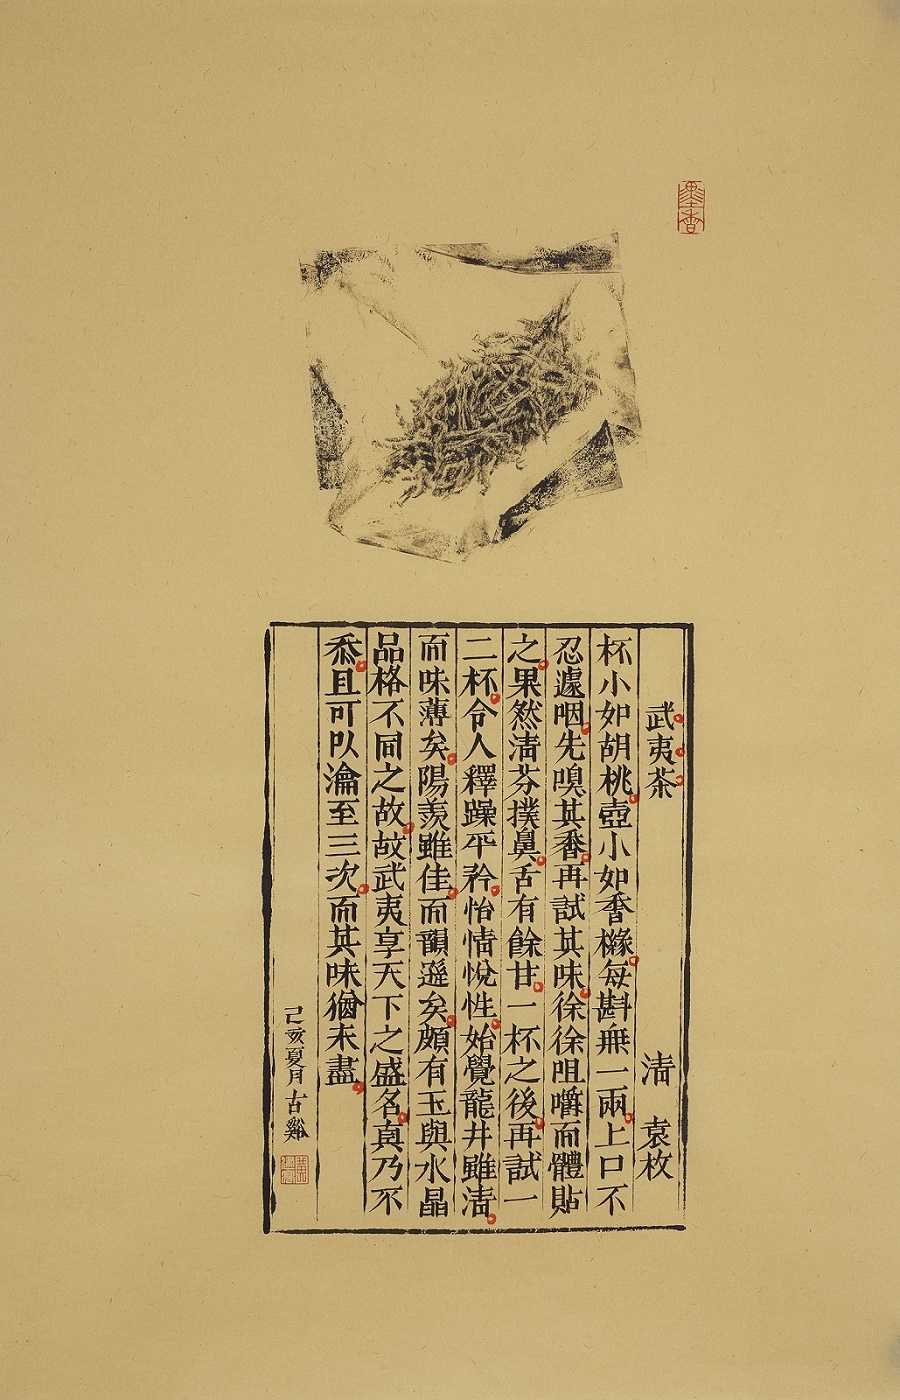 墨香
武夷茶 清 袁枚
杯小如胡桃壺小如香櫞每斟無一兩上口不
忍遽咽先嗅其香再試其味徐徐咀嚼而體貼
之果然清芬撲鼻舌有餘甘一杯之後再試一
二杯令人釋躁平矜怡情悅性始覺龍井雖清
而味薄矣陽羨雖佳而韻遜矣頗有玉與水晶
品格不同之故故武夷享天下之盛名真乃不
忝且可以瀹至三次而其味猶未盡
己亥夏月古谿